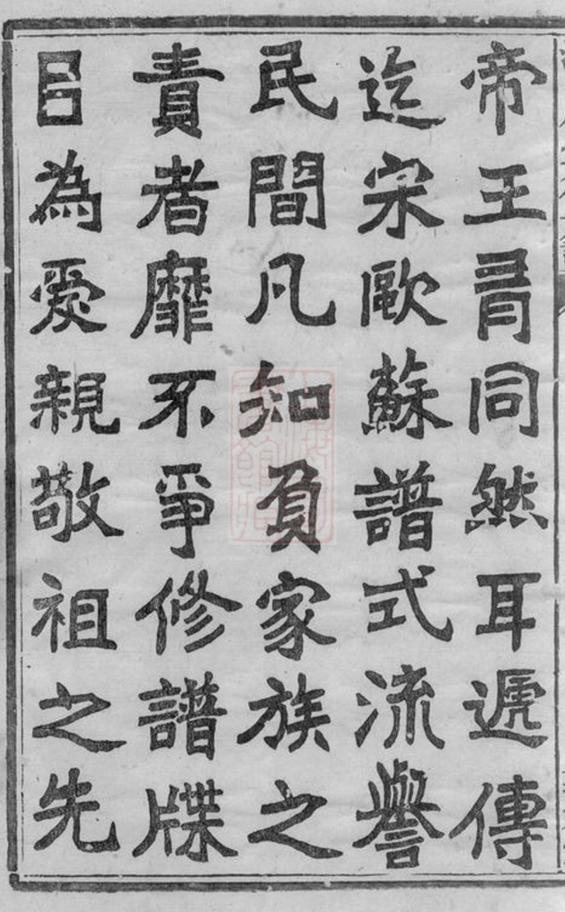 帝王胥同然耳遞傳
迄宋歐蘇譜式流譽
民間凡知負家族之
責者靡不爭修譜牒
㠯為愛親敬祖之先